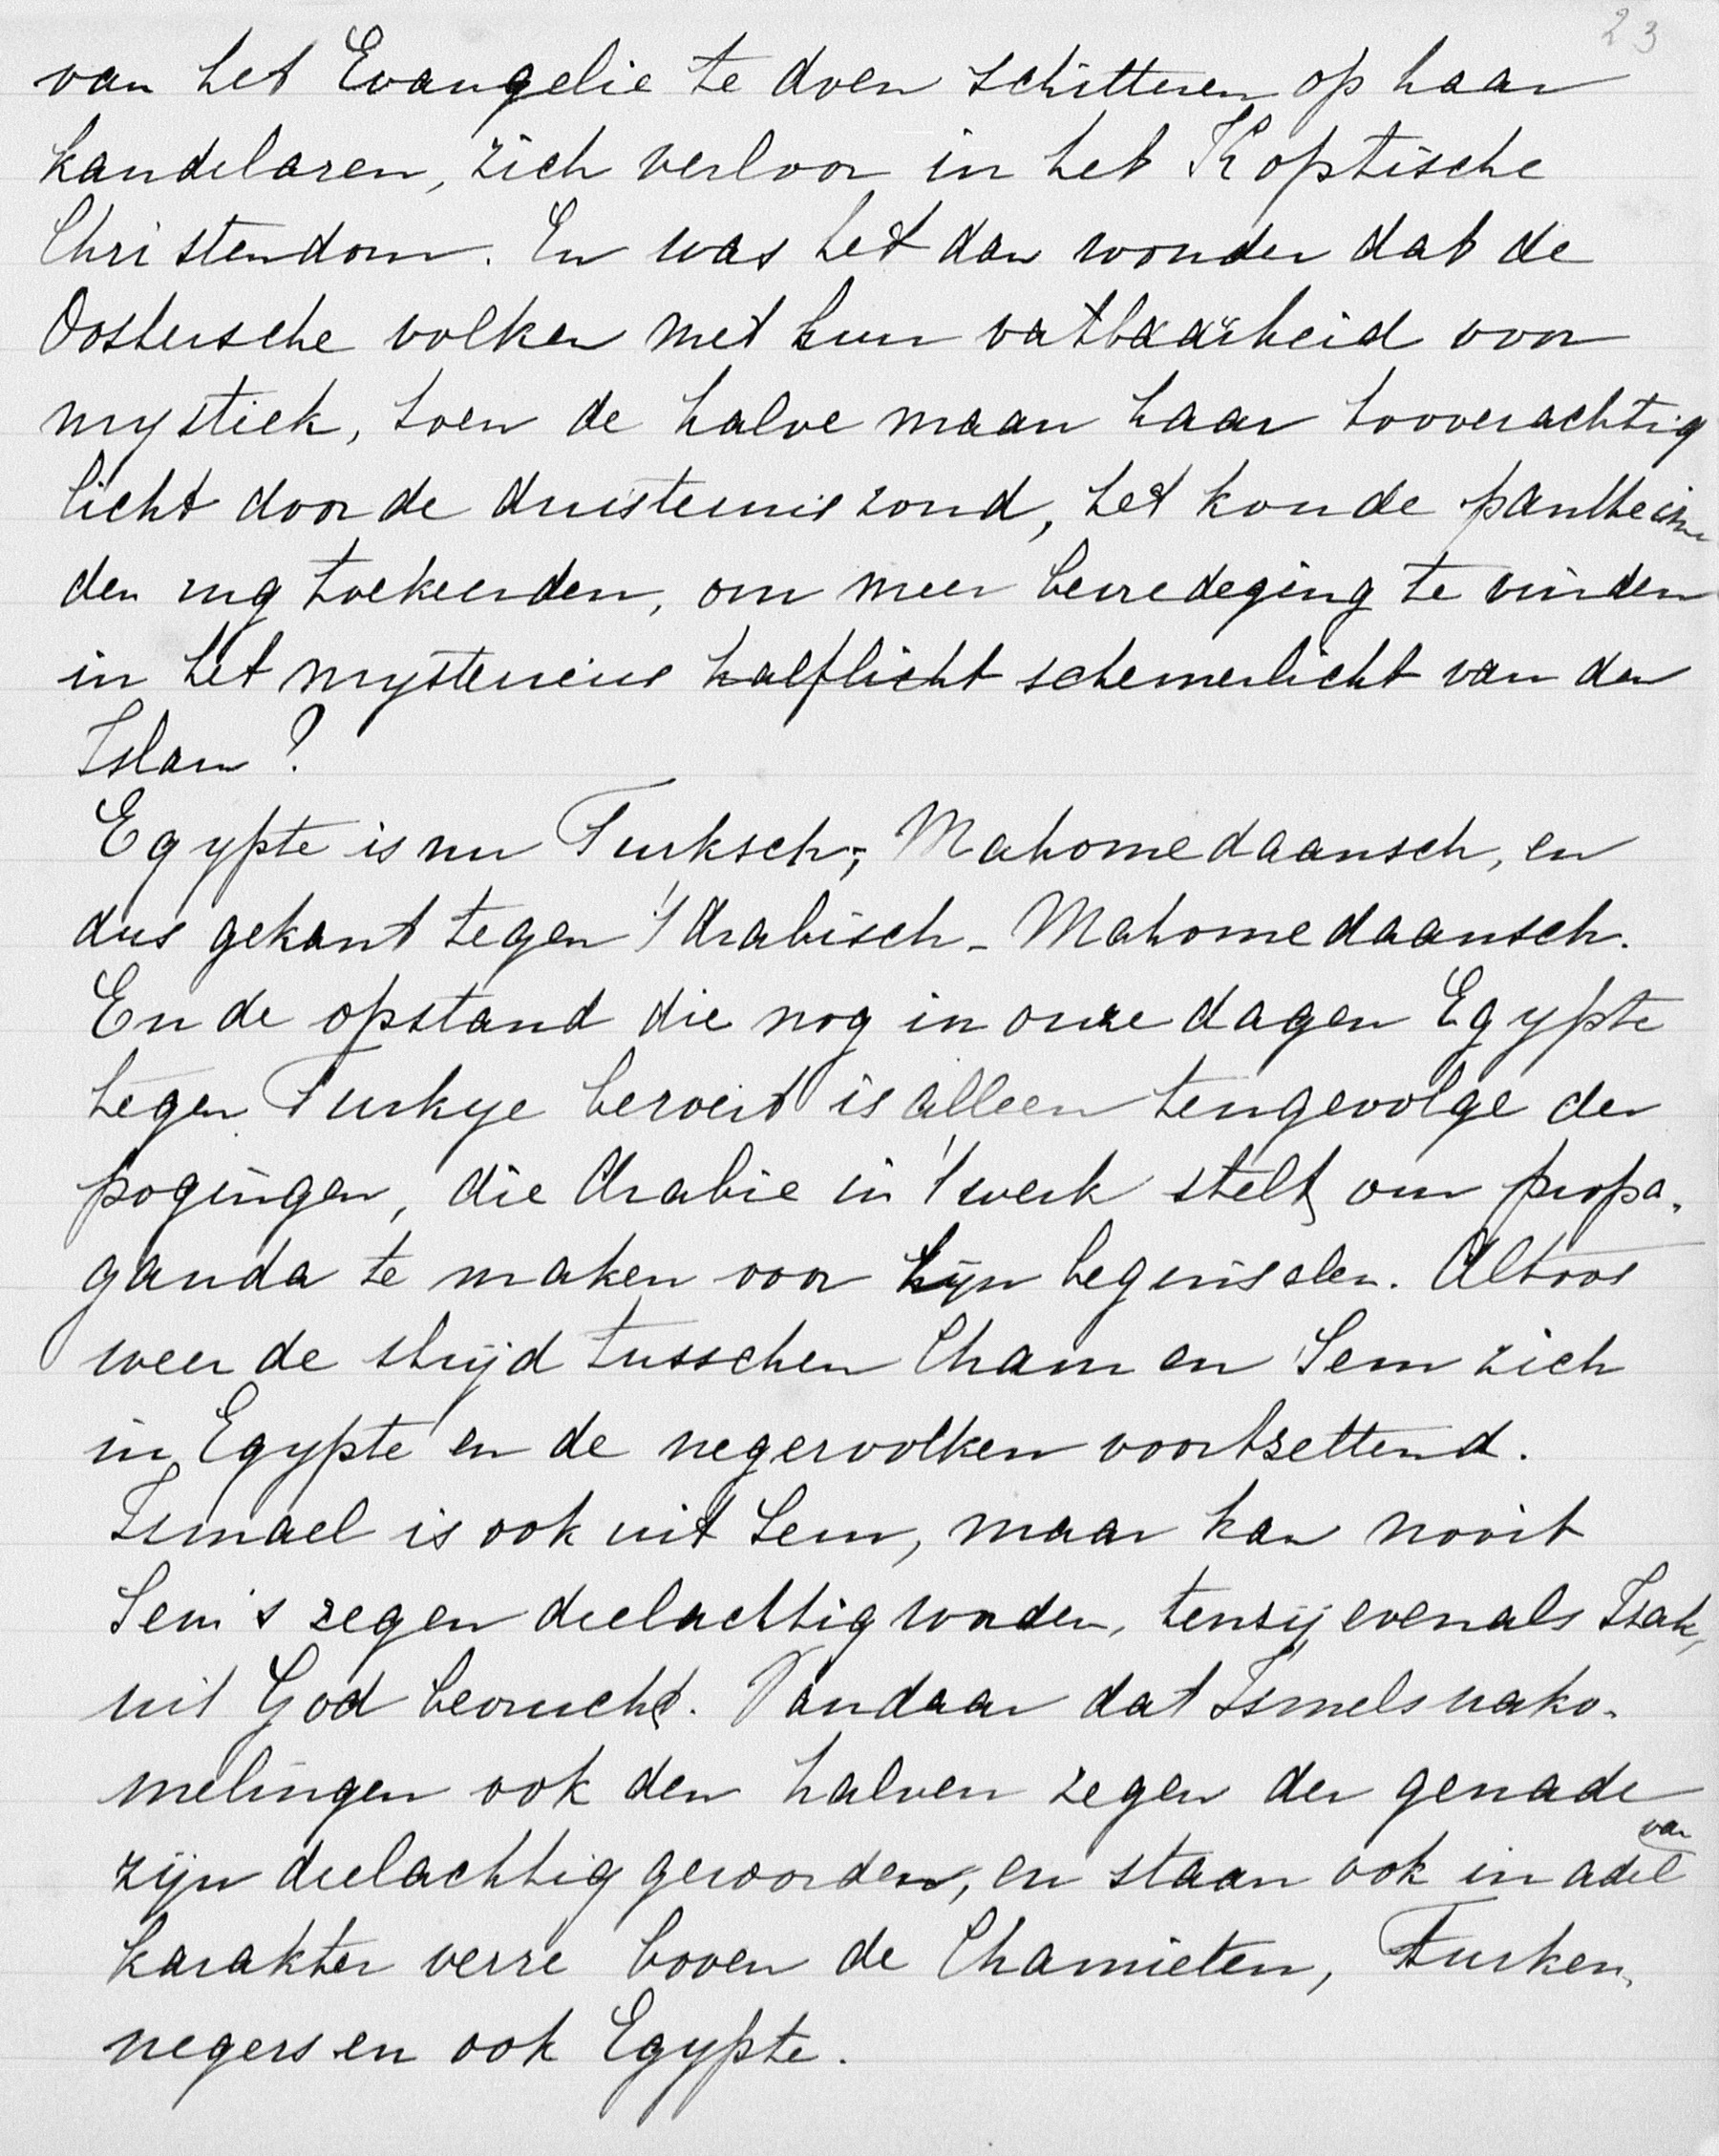 23
van het Evangelie te doen schitteren op haar
kandelaren, zich verloor in het Koptische
Christendom. En was het dan wonder dat de
Oostersche volken met hun vatbaarheid voor
mystiek, toen de halve maan haar tooverachtig
licht door de duisternis zond, het koude pantheisme
den rug toekeerden, om meer bevredeging te vinden
in het mysterieuse halflicht schemerlicht van den
Islam?
Egypte is nu Turksch-, Mahomedaansch, en
dus gekant tegen 't Arabisch-Mahomedaansch.
En de opstand die nog in onze dagen Egypte
tegen Turkye beroert is alleen tengevolge der
pogingen, die Arabie in 't werk stelt om propa-
ganda te maken voor zijn beginselen. Altoos
weer de strijd tusschen Cham en Sem zich
in Egypte en de negervolken voortzettend.
Ismael is ook uit Sem, maar kan nooit
Sem's zegen deelachtig worden, tenzij evenals Isak,
uit God bevrucht. Vandaar dat Ismels nako-
melingen ook den halven zegen der genade
zijn deelachtig geworden, en staan ook in adel van
karakter verre boven de Chamieten, Turken,
negers en ook Egypte.